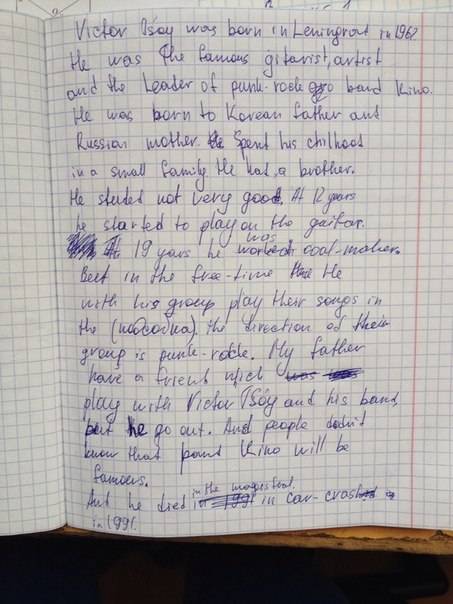 Victor Tsoy was born in Leningrat in 1962
He was the famous gitarist, artist
and the leader of punk-rock band Kino.
He was born to Korean father ant
Russian mother. He spent his chilhoot
in a small family. He hat a brother.
He studed not very good. At 12 years
he started to play on the guitar.
At 19 years he was coal-maker.
But in the free-time the He
with his group play their songs in
the (кочегарка). the direction of their
group is punk-rock. My father
have a frient
play with Victor Tsoy and his band,
but he go out. And people
know that band Kino will be
famous.
And he died in the in car-crash
in 1991.